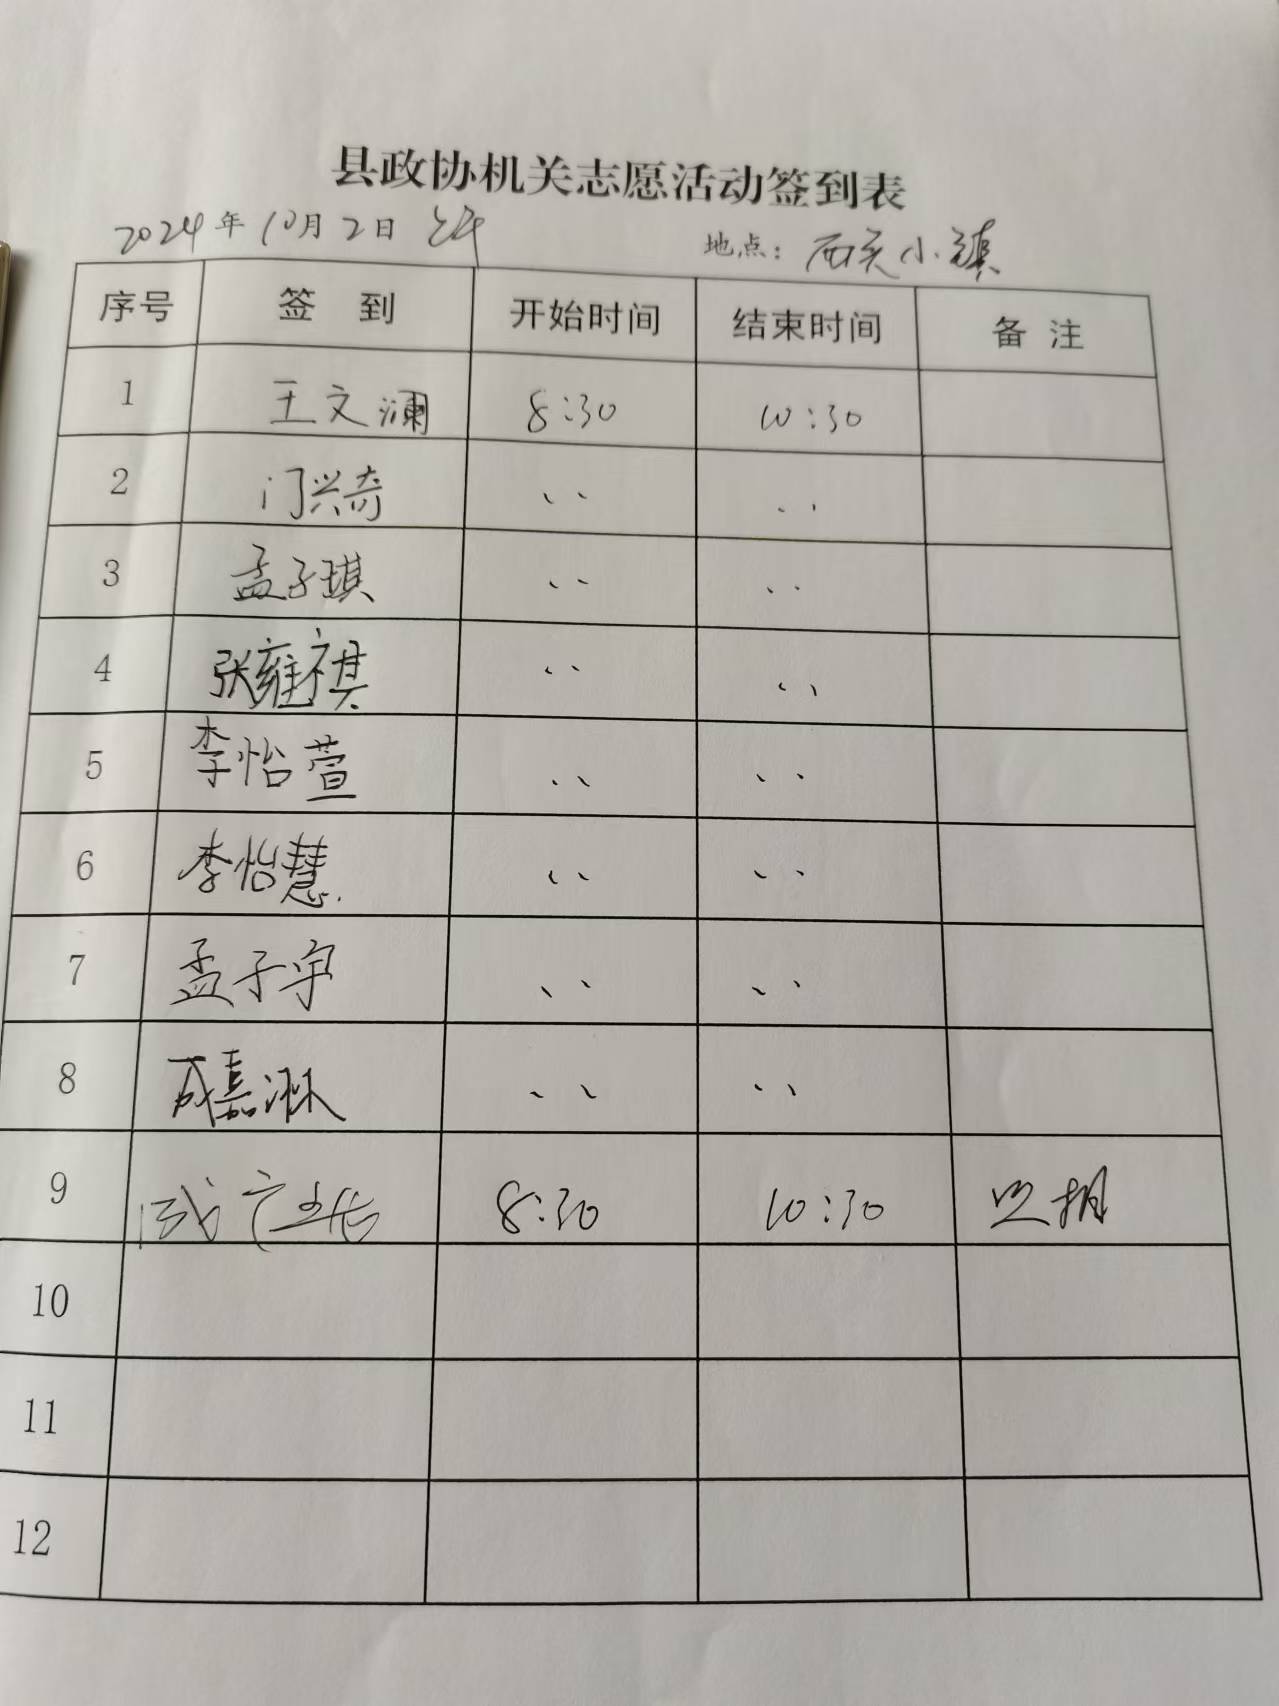 县政协机关志愿活动签到表
2024年10月2日 上午 地点：西关小镇
序号 签 到 开始时间 结束时间 备 注
1 王文澜 8:30 10:30
2 门兴奇 、、 、、
3 孟子琪 、、 、、
4 张雍祺 、、 、、
5 李怡萱 、、 、、
6 李怡慧 、、 、、
7 孟子宇 、、 、、
8 成嘉淋 、、 、、
9 8:30 10:30
10
11
12